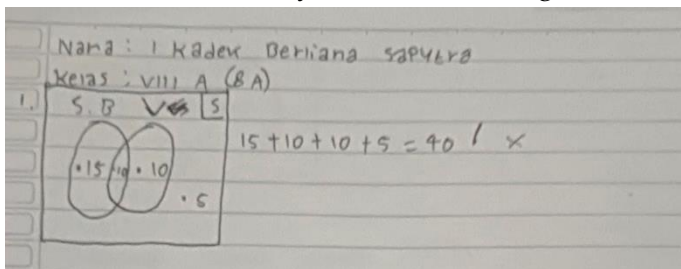 Nama : I Kadek Berliana Saputra
Kelas : VIII A (8 A)
1.
S.B V S
15 + 10 + 10 + 5 = 40 / x
• 15 10 • 10
• 5